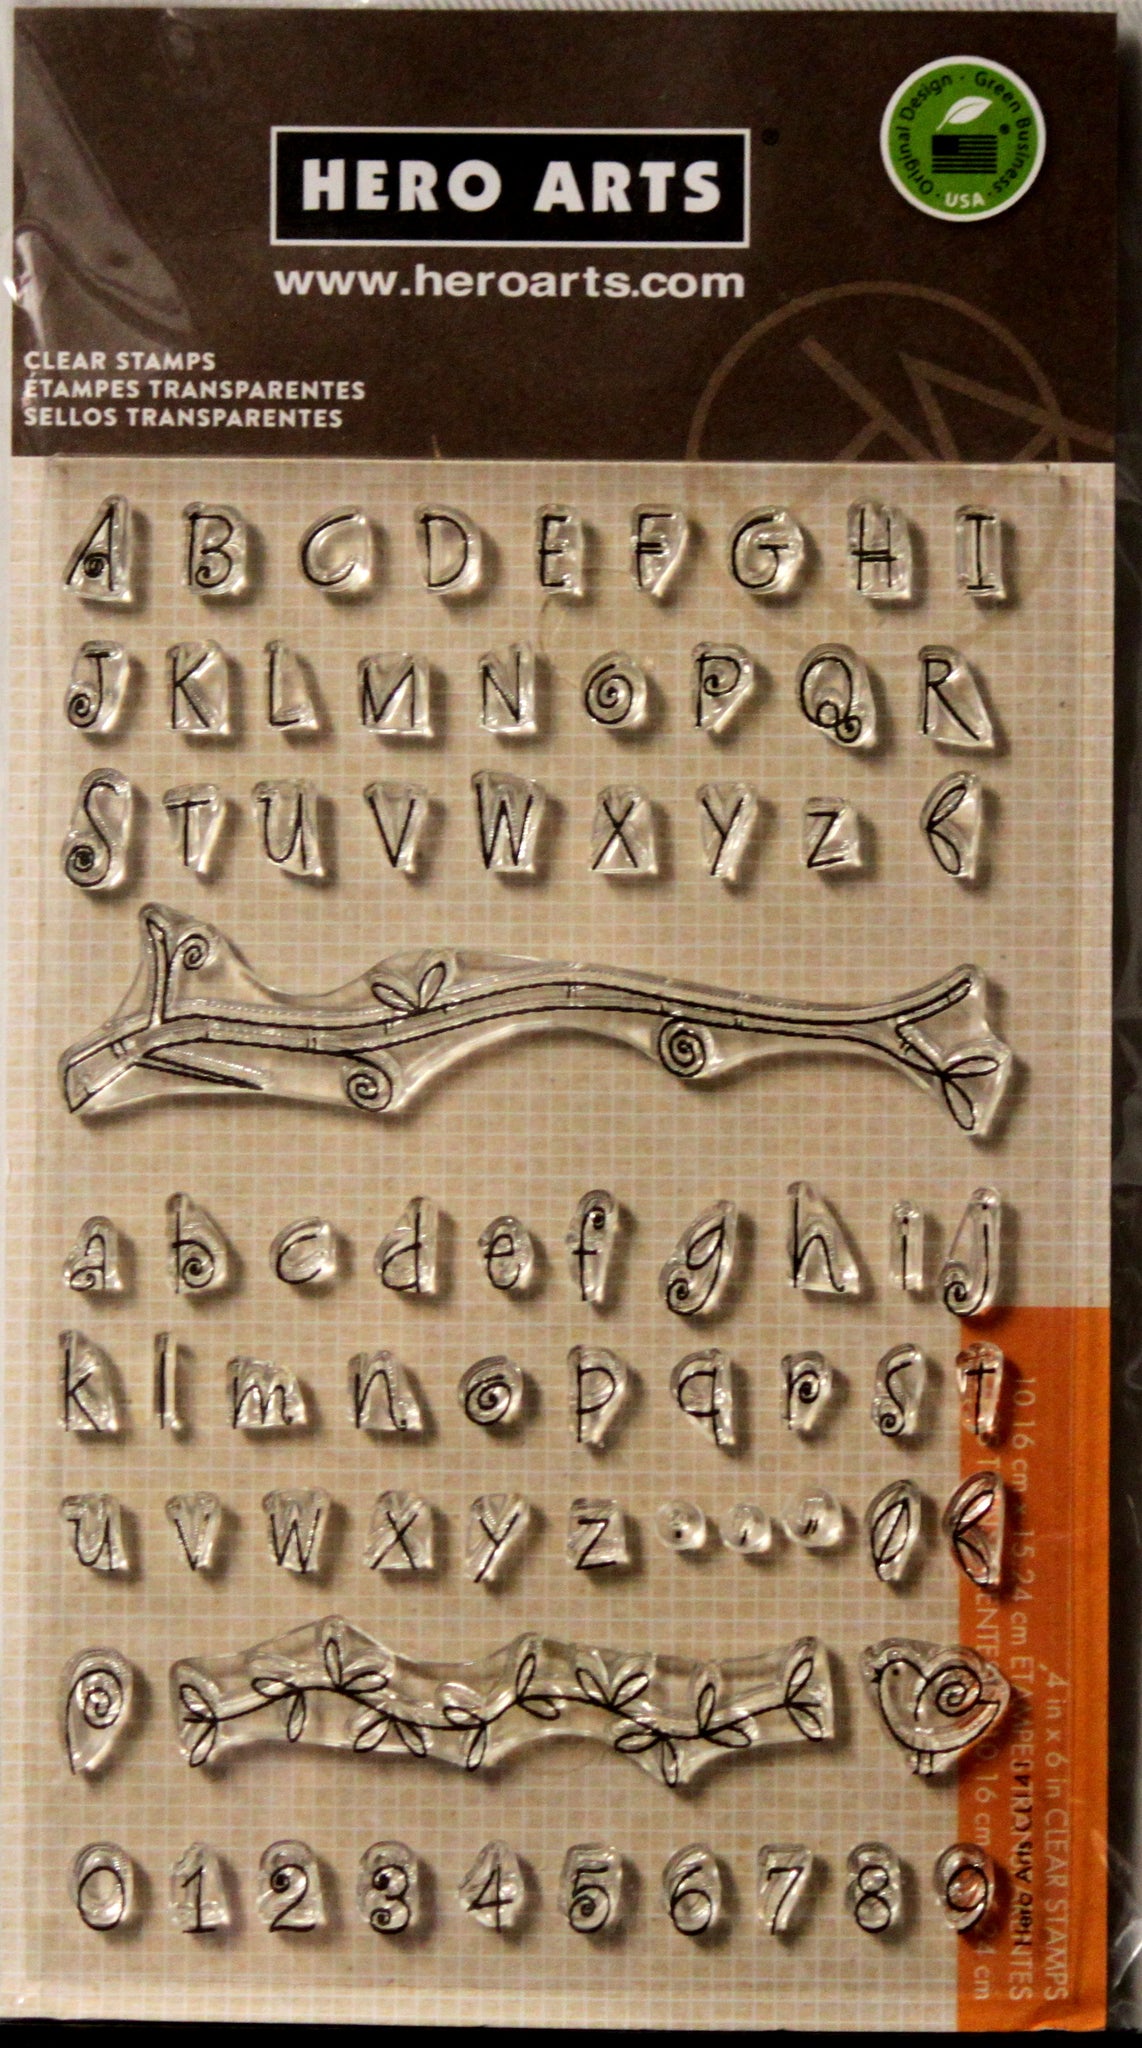 Original Design · Green Business · USA ·
HERO ARTS®
www.heroarts.com
CLEAR STAMPS
ÉTAMPES TRANSPARENTES
SELLOS TRANSPARENTES
A B C D E F G H I
J K L M N O P Q R
S T U V W X Y Z
a b c d e f g h i j
k l m n o p q r s t
u v w x y z . , "
0 1 2 3 4 5 6 7 8 9
4 in x 6 in CLEAR STAMPS
10.16 cm x 15.24 cm
Hero Arts